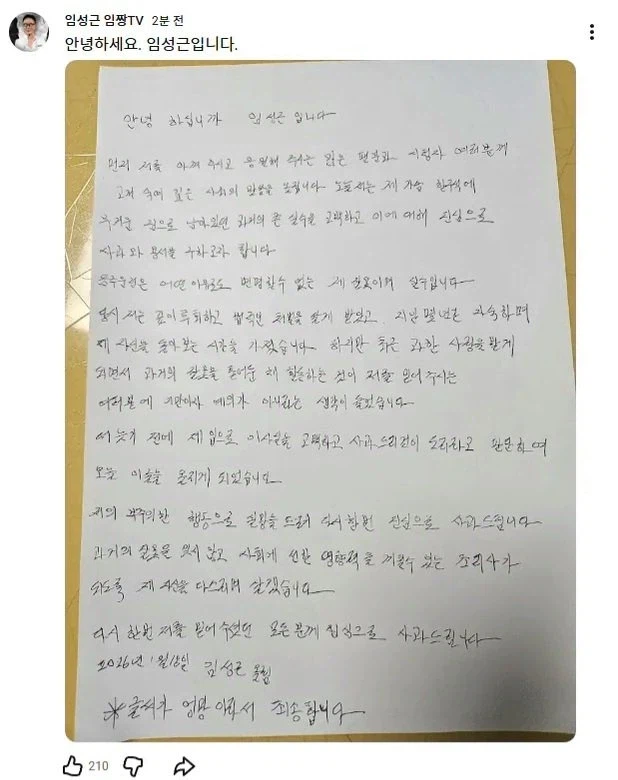 임성근 임짱TV 2분 전
안녕하세요. 임성근입니다.
안녕 하십니까 임성근 입니다
먼저 저를 아껴 주시고 응원해 주시는 많은 팬분과 시청자 여러분께
고개 숙여 깊은 사죄의 말씀을 드립니다 오늘 저는 제 가슴 한구석에
무거운 짐으로 남아있던 과거의 큰 실수를 고백하고 이에 대해 진심으로
사과와 용서를 구하고자 합니다
음주운전은 어떤 이유로도 변명할수 없는 제 잘못이며 실수입니다
당시 저는 깊이 후회하고 법적인 처벌을 달게 받았고 지난 몇년간 자숙하며
제 자신을 돌아보는 시간을 가졌습니다 하지만 최근 과한 사랑을 받게
되면서 과거의 잘못을 묻어둔 채 활동하는 것이 저를 믿어 주시는
여러분에 기만이자 예의가 아니라는 생각이 들었습니다
더 늦기 전에 제 입으로 이사실을 고백하고 사과 드리것이 도리라고 판단하여
오늘 이글을 올리게 되었습니다
저의 부주의한 행동으로 실망을 드려 다시한번 진심으로 사과드립니다
과거의 잘못을 잊지 않고 사회게 선한 영향력을 끼칠수 있는 조리사가
되도록 제 자신을 다스리며 살겠습니다
다시 한번 저를 믿어주셨던 모든 분께 진심으로 사과드립니다
2026년 1월 18일 임성근 올림
*글씨가 엉망 이라서 죄송합니다
210